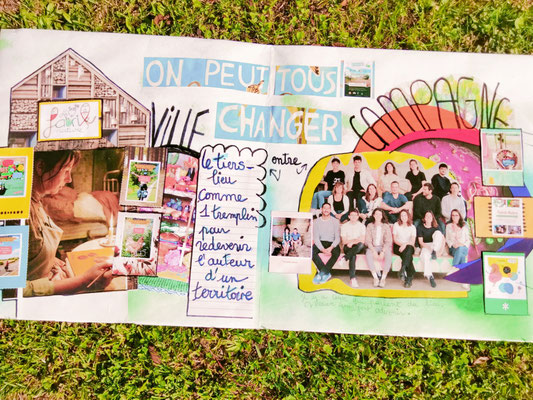 ON PEUT TOUS
CHANGER
VILLE
CAMPAGNE
le tiers-
lieu
comme
1 tremplin
pour
redevenir
l'auteur
d'un
territoire
entre